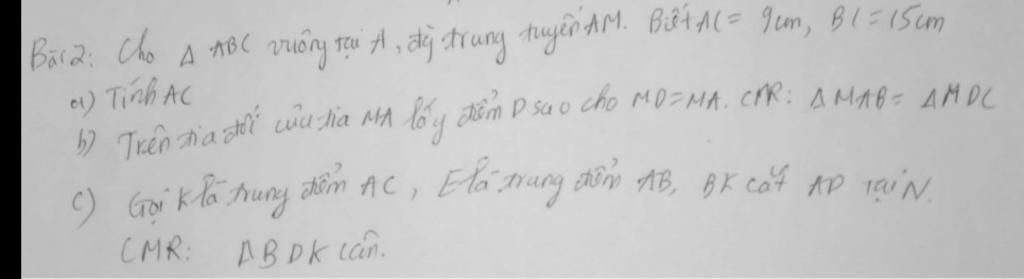 Bài 2: Cho Δ ABC vuông tại A, đg trung tuyến AM. Biết AC = 9cm, BC = 15cm
a) Tính AC
b) Trên tia đối của tia MA lấy điểm D sao cho MD = MA. CMR: Δ MAB = Δ MDC
c) Gọi K là trung điểm AC, E là trung điểm AB, BK cắt AD tại N.
CMR: Δ BDK cân.